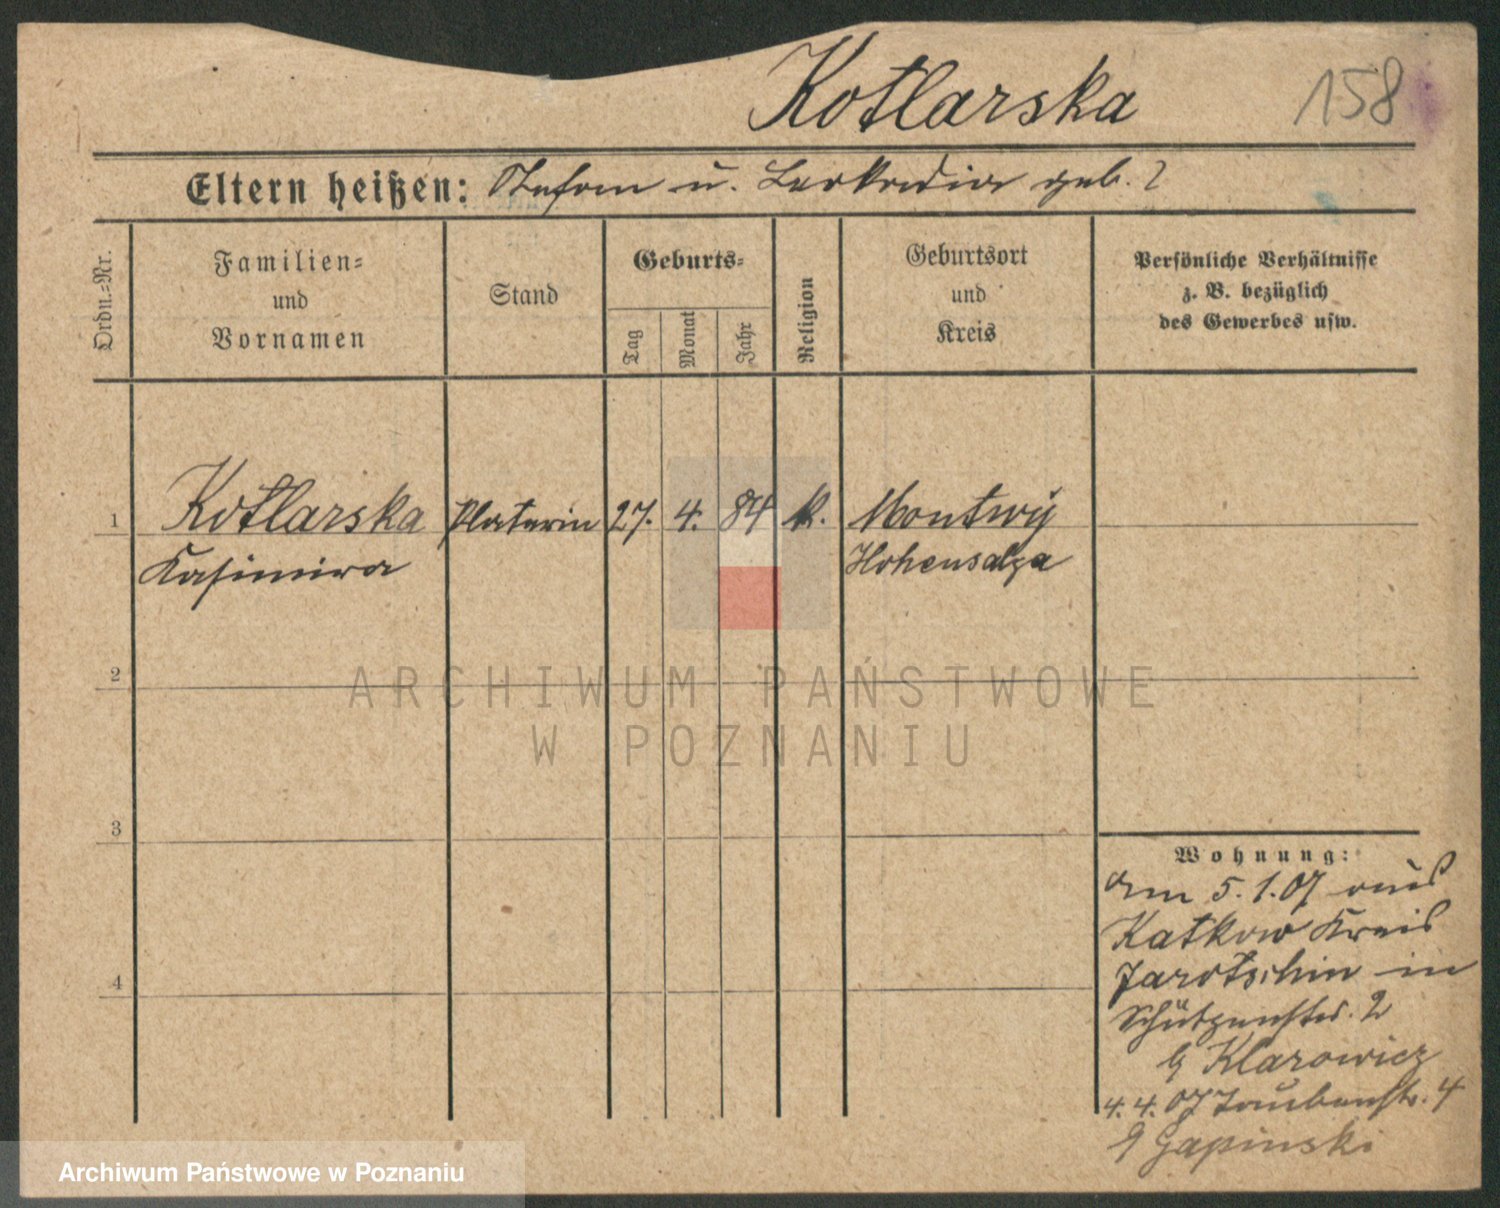 Kotlarska 158
Eltern heißen: Stefan u. Leokadia geb. ?
Ordn.-Nr.
Familien-
und
Vornamen
Stand
Geburts-
Tag
Monat
Jahr
Religion
Geburtsort
und
Kreis
Persönliche Verhältnisse
z. B. bezüglich
des Gewerbes usw.
1 Kotlarska Platerin 27. 4. 84 k. Montwy
Kasimira Hohensalza
2
ARCHIWUM PAŃSTWOWE
W POZNANIU
3
4
Wohnung:
am 5.1.07 aus
Katkow Kreis
Jarotschin in
Schützenstr. 2
Klarowicz
4.4.07 Taubenstr. 4
Gapinski
Archiwum Państwowe w Poznaniu